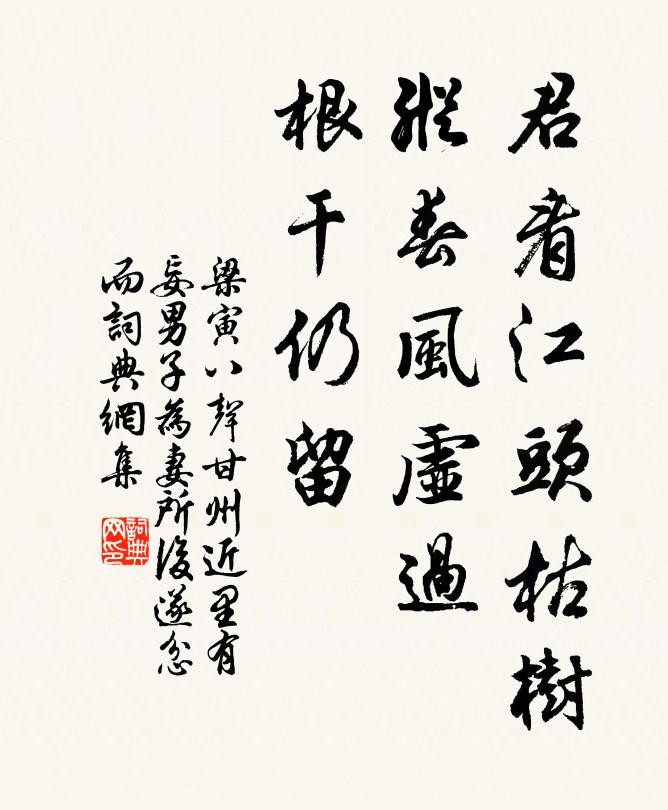 君看江頭枯樹
縱春風虛過
根干仍留
梁寅八聲甘州近里有
妄男子為妻所後遂忿
而詞典網集
詞典
网印